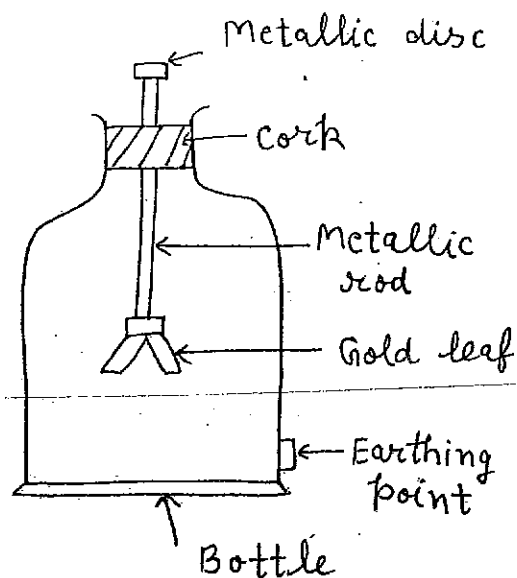 Metallic disc
Cork
Metallic
rod
Gold leaf
Earthing
point
Bottle